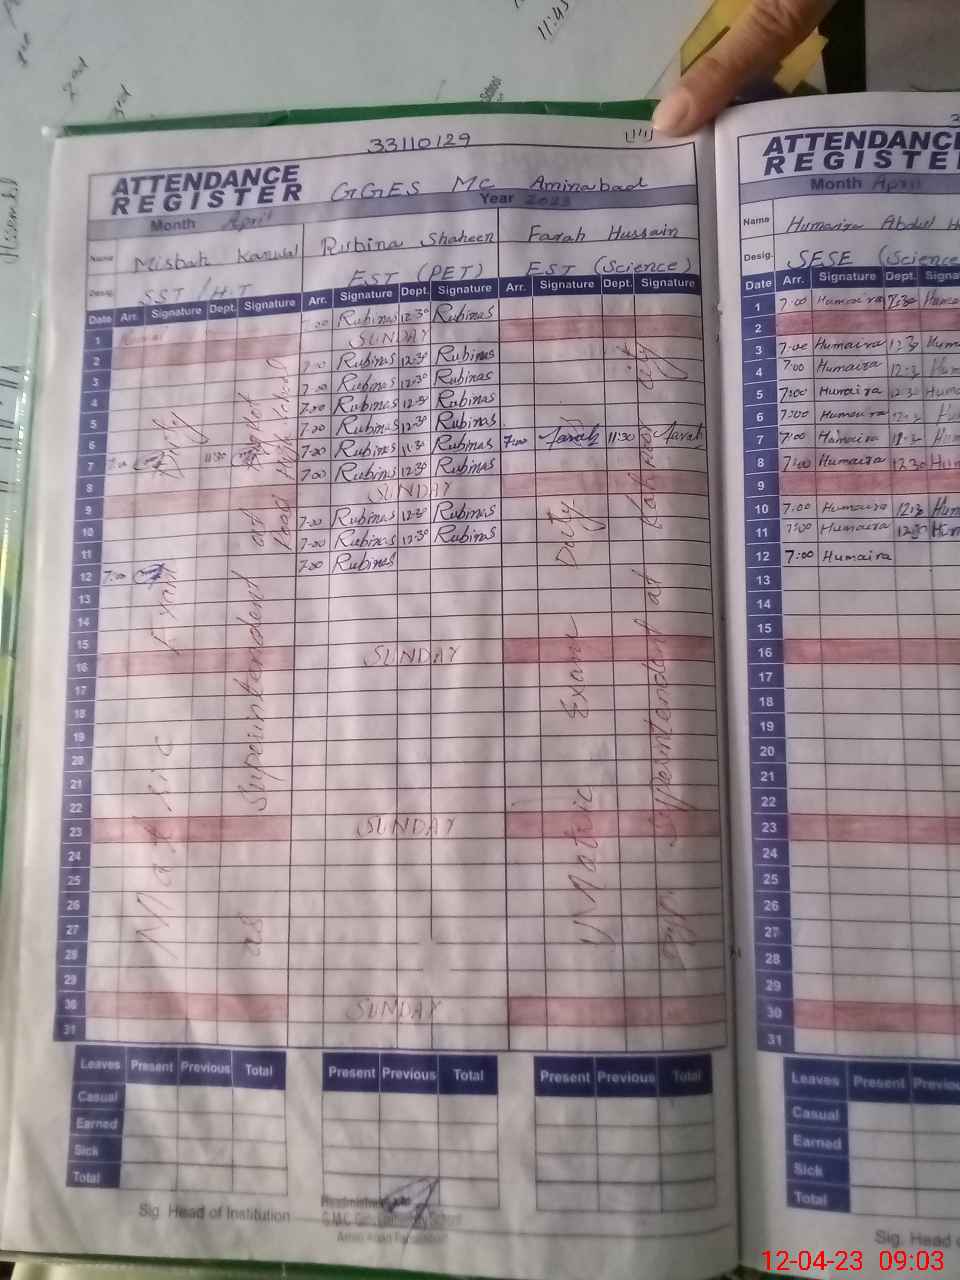 11:45
33110129
ATTENDANCE REGISTER GGES MC Aminabad
Month April Year 2023
Name Misbah Kanwal Rubina Shaheen Farah Hussain
Desig. SST / H.T EST (PET) EST (Science)
Date Arr. Signature Dept. Signature Arr. Signature Dept. Signature Arr. Signature Dept. Signature
1 7:00 Rubinas 12:30 Rubinas
2 SUNDAY
3 7:00 Rubinas 12:30 Rubinas
4 7:00 Rubinas 12:30 Rubinas
5 7:00 Rubinas 12:30 Rubinas
6 7:00 Rubinas 12:30 Rubinas
7 7:00 11:30 7:00 Rubinas 11:30 Rubinas 7:00 Farah 11:30 Farah
8 7:00 Rubinas 12:30 Rubinas
9 SUNDAY
10 7:00 Rubinas 12:30 Rubinas
11 7:00 Rubinas 12:30 Rubinas
12 7:00 7:00 Rubinas
13
14
15
16 SUNDAY
17
18
19
20
21
22
23 SUNDAY
24
25
26
27
28
29
30 SUNDAY
31
Matric Exam Duty
as Superintendent at
High School
Matric Exam Duty
Superintendent at
Leaves Present Previous Total Present Previous Total Present Previous Total
Casual
Earned
Sick
Total
Sig. Head of Institution
ATTENDANCE
REGISTER
Month April
Name Humaira Abdul
Desig. SESE (Science
Date Arr. Signature Dept.
1 7:00 Humaira 12:30
2
3 7:00 Humaira 12:30
4 7:00 Humaira 12:30
5 7:00 Humaira 12:30
6 7:00 Humaira
7 7:00 Humaira
8 7:00 Humaira 12:30
9
10 7:00 Humaira 12:30
11 7:00 Humaira 12:30
12 7:00 Humaira
13
14
15
16
17
18
19
20
21
22
23
24
25
26
27
28
29
30
31
Leaves Present
Casual
Earned
Sick
Total
Sig. Head
12-04-23 09:03